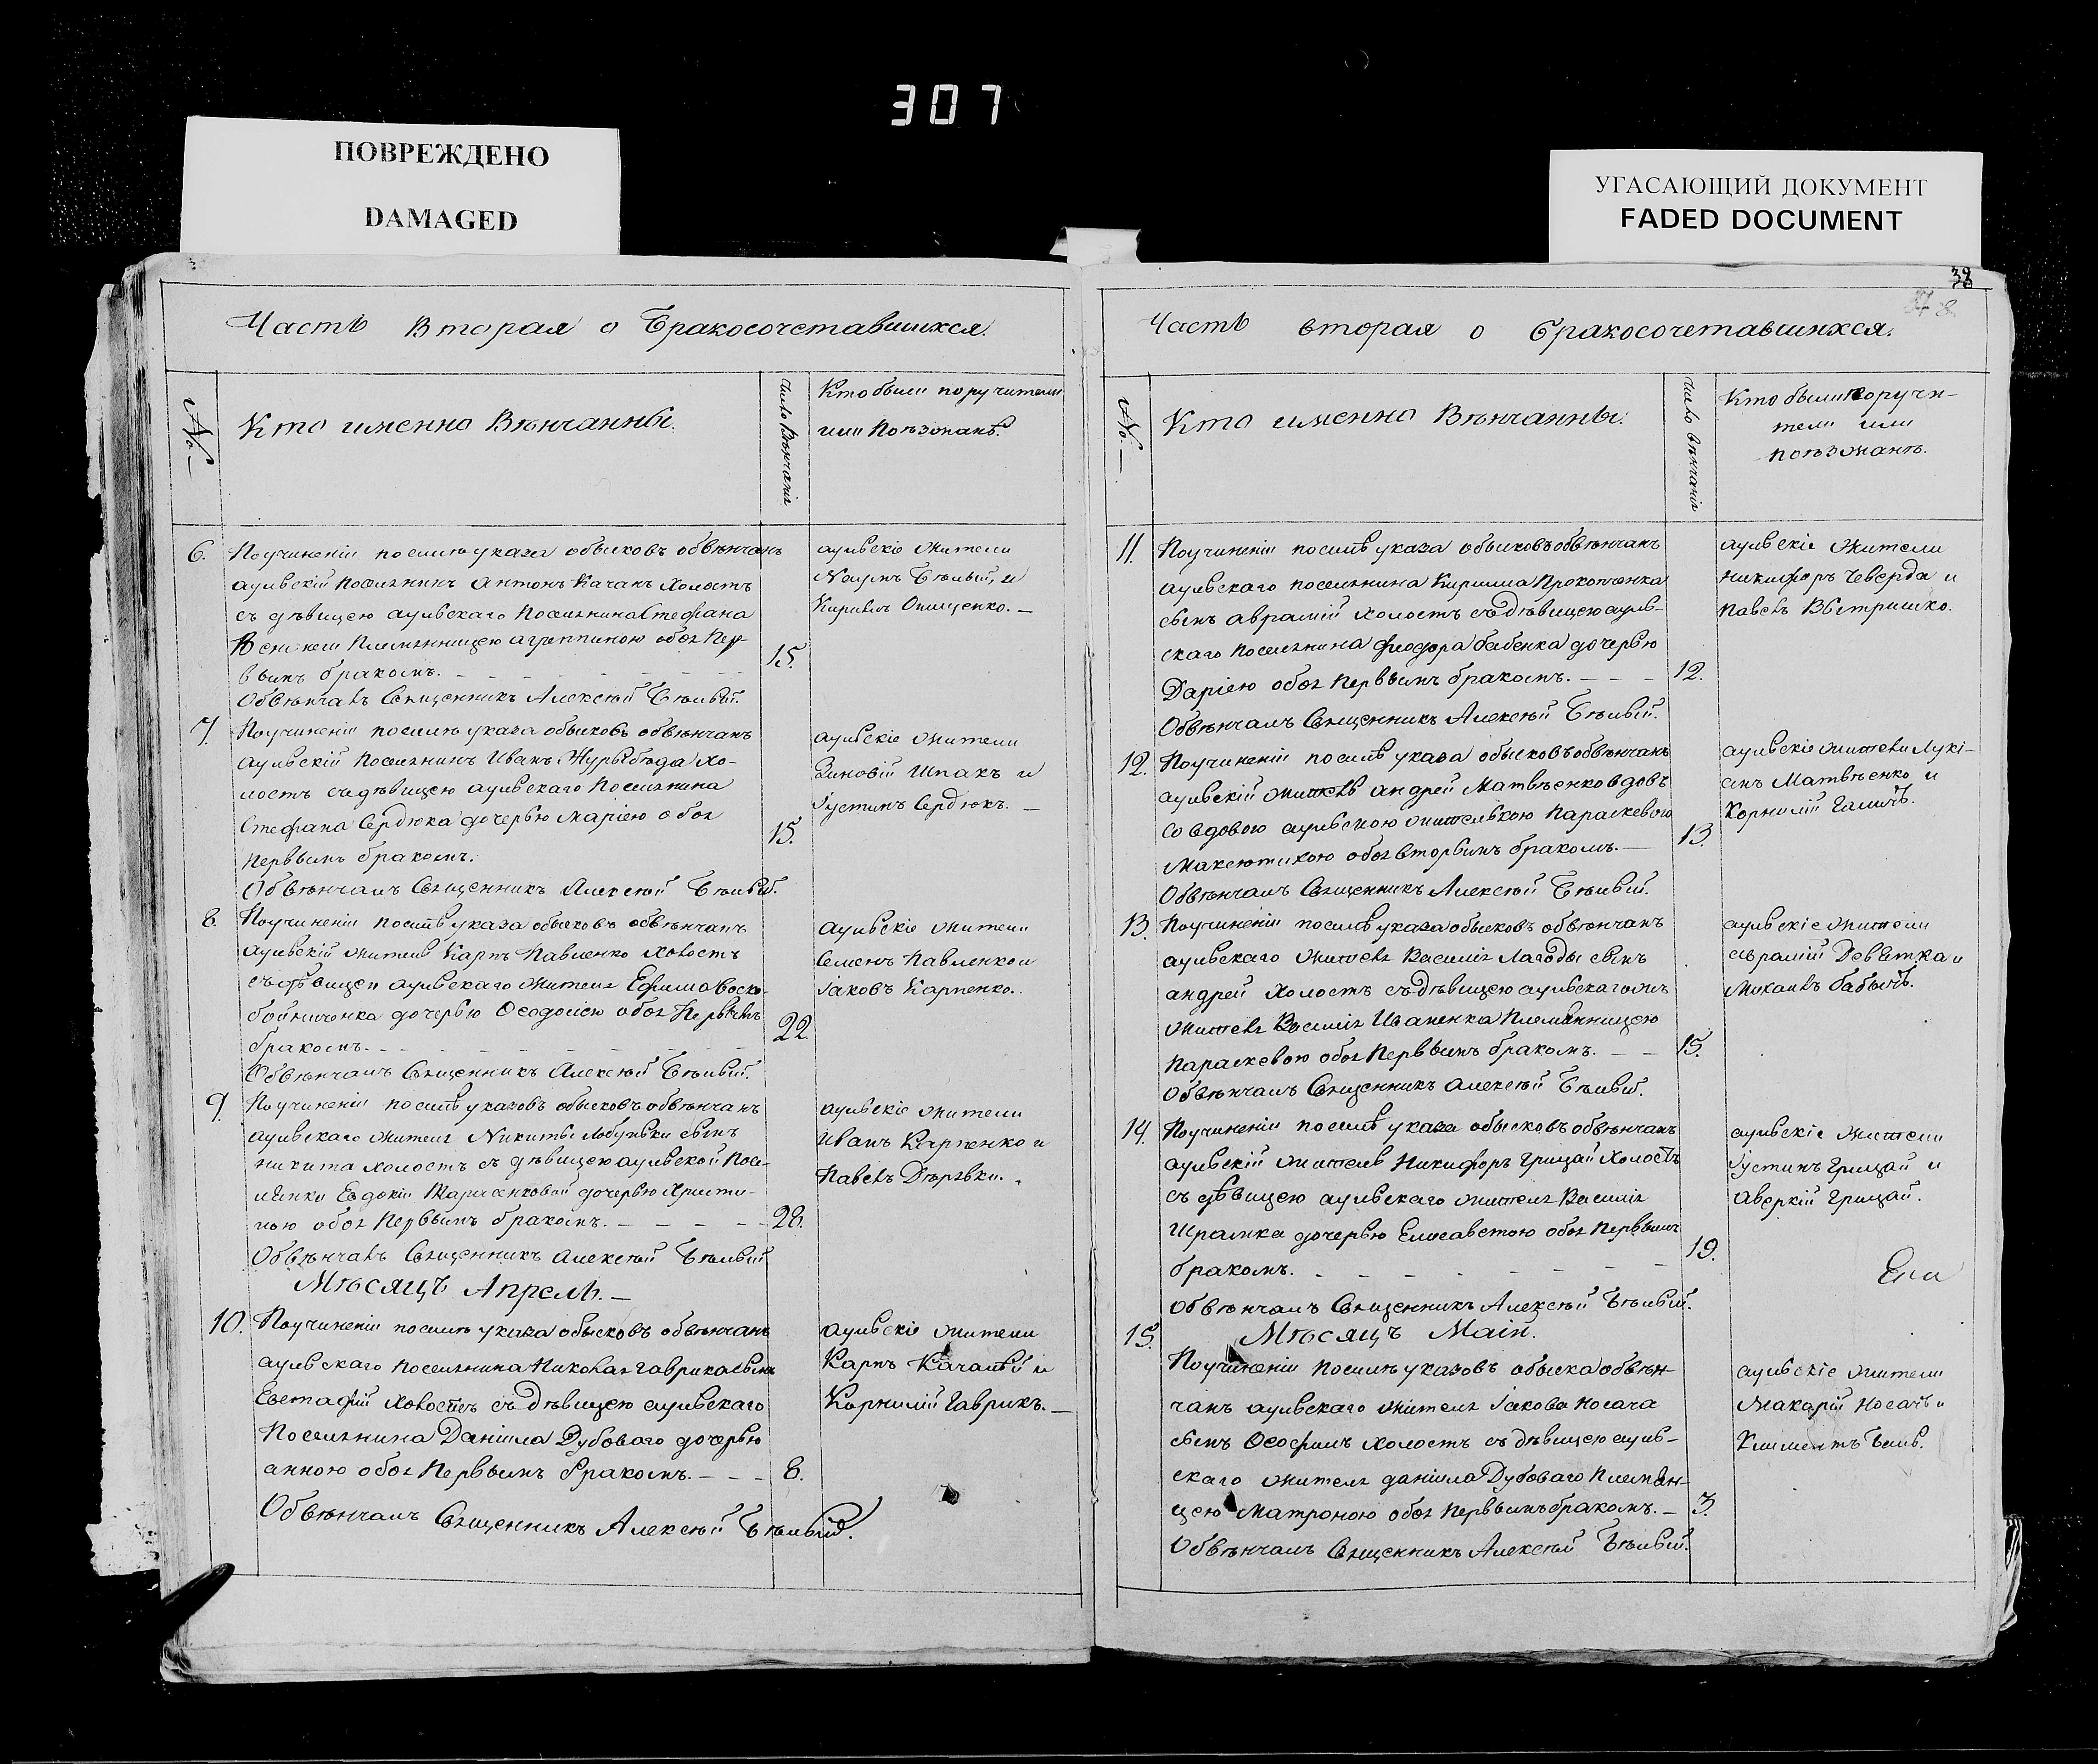 307
ПОВРЕЖДЕНО
DAMAGED
УГАСАЮЩИЙ ДОКУМЕНТ
FADED DOCUMENT
Часть Вторая о Бракосочетавшихся.
№
Кто именно Вѣнчанны.
число Вѣнчанія
Кто были поручители
или Поѣзжанѣ.
6. Поучиненіи посилѣ указа обысковъ обвѣнчанъ
аулѣскій Поселянинъ Антонъ Качанъ Холостъ
съ дѣвицею аулѣскаго Поселянина Стефана
Племянницею агреппиною обоя Пер
вымъ бракомъ. 15.
Обвѣнчалъ Священникъ Алексѣй Бѣлый.
аулѣскіе жители
Наумъ Бѣлый, и
Кирилъ Онищенко.
7. Поучиненіи посилѣ указа обысковъ обвѣнчанъ
аулѣскій Поселянинъ Иванъ Журыбѣда Хо-
лостъ съ дѣвицею аулѣскаго Поселянина
Стефана Сердюка дочерью Маріею обоя
Первымъ бракомъ. 15.
Обвѣнчалъ Священникъ Алексѣй Бѣлый.
аулѣскіе жители
Зиновій Шпакъ и
Іустинъ Сердюкъ.
8. Поучиненіи посилѣ указа обысковъ обвѣнчанъ
аулѣскій житель Карпъ Павленко Холостъ
съ дѣвицеи аулѣскаго жителя Ефима Воско-
бойниченка дочерью Ѳеодосіею обоя Первымъ
бракомъ. 22.
Обвѣнчалъ Священникъ Алексѣй Бѣлый.
аулѣскіе жители
Семенъ Павленко и
Іаковъ Карпенко.
9. Поучиненіи посилѣ указовъ обысковъ обвѣнчанъ
аулѣскаго жителя Никиты Лобуньки сынъ
никита холостъ съ дѣвицею аулѣской Посе-
лянки Евдокіи дочерью Христи-
ною обоя Первымъ бракомъ. 28.
Обвѣнчалъ Священникъ Алексѣй Бѣлый
аулѣскіе жители
Иванъ Карпенко и
Павелъ
Мѣсяцъ Апрель.
10. Поучиненіи посилѣ указа обысковъ обвѣнчанъ
аулѣскаго Поселянина Николая Гаврика сынъ
Евстафій Холостъ съ дѣвицею аулѣскаго
Поселянина Даніила Дубоваго дочерью
анною обоя Первымъ бракомъ. 8.
Обвѣнчалъ Священникъ Алексѣй Бѣлый.
аулѣскіе жители
Карпъ и
Корнилій Гаврикъ.
38
Часть вторая о бракосочетавшихся.
№
Кто именно Вѣнчанны.
число вѣнчанія
Кто были поручи-
тели или
поѣзжанѣ.
11. Поучиненіи посилѣ указа обысковъ обвѣнчанъ
аулѣскаго поселянина Кирилла Прокопченка
сынъ авраміій холостъ съ дѣвицею аулѣ-
скаго Поселянина Ѳеодора бабенка дочерью
Даріею обоя Первымъ бракомъ. 12.
Обвѣнчалъ Священникъ Алексѣй Бѣлый.
аулѣскіе жители
никифоръ Чеверда и
Павелъ
12. Поучиненіи посилѣ указа обысковъ обвѣнчанъ
аулѣскій житель андрей Матвѣенко вдовъ
со вдовою аулѣскою жителькою Параскевою
Максютихою обоя вторымъ бракомъ. 13.
Обвѣнчалъ Священникъ Алексѣй Бѣлый.
аулѣскіе жители Лукі-
янъ Матвѣенко и
Корнилій Галичъ.
13. Поучиненіи посилѣ указа обысковъ обвѣнчанъ
аулѣскаго жителя Василія Лагоды сынъ
андрей Холостъ съ дѣвицею аулѣскаго
жителя Василія Иваненка Племянницею
Параскевою обоя Первымъ бракомъ. 15.
Обвѣнчалъ Священникъ Алексѣй Бѣлый.
аулѣскіе жители
Девятка и
Михаилъ бабычъ.
14. Поучиненіи посилѣ указа обысковъ обвѣнчанъ
аулѣскій житель Никифоръ Грицай Холостъ
съ дѣвицею аулѣскаго жителя Василія
Шрамка дочерью Елисаветою обоя Первымъ
бракомъ. 19.
Обвѣнчалъ Священникъ Алексѣй Бѣлый.
аулѣскіе жители
Іустинъ Грицай и
аверкій Грицай.
15. Мѣсяцъ Маій.
Поучиненіи посилѣ указовъ обыска обвѣн-
чанъ аулѣскаго жителя Іакова Носача
сынъ Ѳеофилъ холостъ съ дѣвицею аулѣ-
скаго жителя даніила Дубоваго Племян-
цею Матроною обоя Первымъ бракомъ. 3.
Обвѣнчалъ Священникъ Алексѣй Бѣлый.
аулѣскіе жители
Макарій Носачъ и
Климентъ